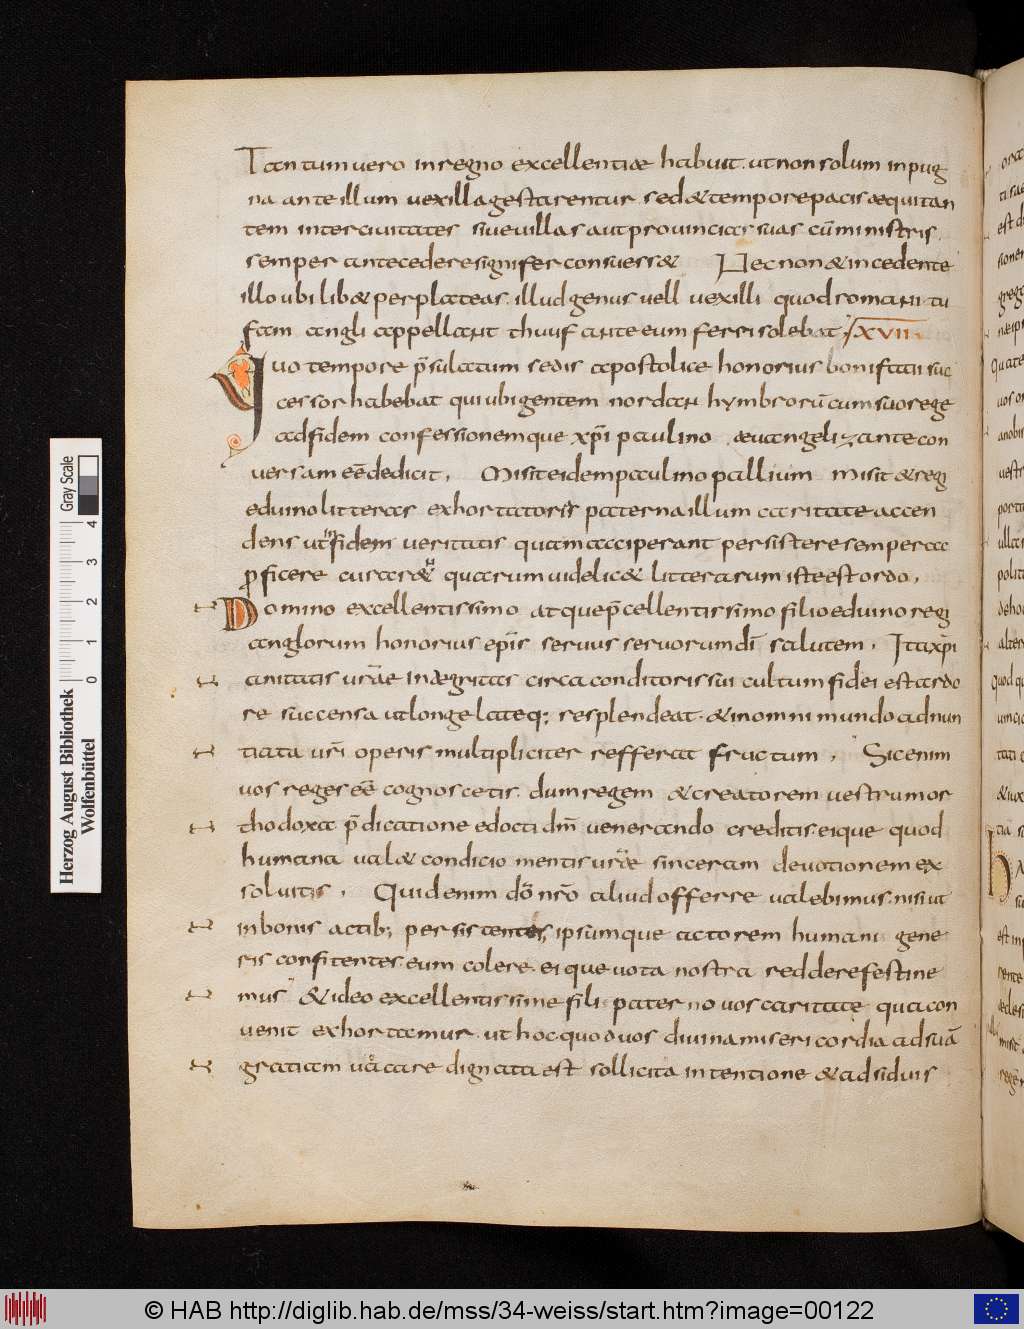 Tantum vero in regno excellentiae habuit. ut non solum in pug
na ante illum vexilla gestarentur. sed & tempore pacis aequitan
tem inter civitates sive villas aut provincias suas cū ministris.
semper antecedere signifer consuess& Nec non & incedente
illo ubi lib& per plateas. illud genus vexilli quod romani tu
fam angli appellant thuuf ante eum ferri solebat XVII
Quo tempore p̄sulatum sedis apostolice honorius bonifatii suc
cessor habebat qui ubi gentem nordan hymbrorū cum suo rege
ad fidem confessionemque xp̄i paulino aeuangelizante con
versam eē dedicit, Misit eidem paulino pallium misit & regi
eduino litteras exhortatoris paterna illum caritate accen
dens ut fidem veritatis quam acciperant persistere semper ac
proficere curar& quarum videlic& litterarum iste est ordo,
Domino excellentissimo atque p̄cellentissimo filio eduino regi
anglorum honorius ep̄is servus servorum dī salutem, Ita xp̄i
anitatis vrāe integritas circa conditoris sui cultum fidei est ardo
re succensa ut longe lateq; resplendeat. & in omni mundo ad nun
tiata vrī operis multipliciter refferat fructum, Sic enim
vos reges eē cognoscetis. dum regem & creatorem vestrum or
thodoxa p̄dicatione edocti dm̄ venerando creditis. eique quod
humana val& condicio mentis vrāe sinceram devotionem ex
solvitis, Quid enim dō nrō aliud offerre valebimus. nisi ut
in bonis actib; persistentes, ipsumque actorem humani gene
ris confitentes. eum colere. eique vota nostra reddere festine
mus & ideo excellentissime fili paterno vos caritate qua con
venit exhortamur. ut hoc. quod vos divina misericordia ad suā
gratiam vocare dignata est sollicita intentione & adsiduis
Herzog August Bibliothek
Wolfenbüttel
Gray Scale
0 1 2 3 4
© HAB http://diglib.hab.de/mss/34-weiss/start.htm?image=00122